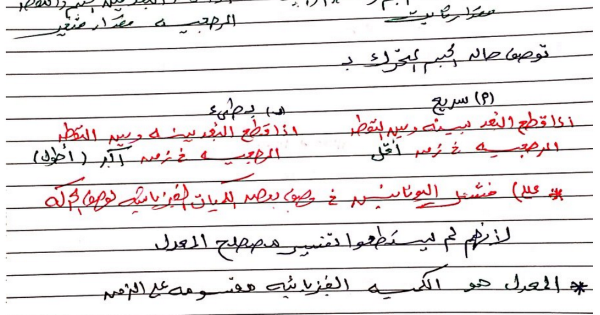 مقدار ثابت المرجعيه مقدار متغير
توصف حاله الجسم المتحرك بـ
(P) سريع (ب) بطيء
اذا قطع البعد بينه وبين النقطه اذا قطع البعد بينه وبين النقطه
المرجعيه في زمن أقل المرجعيه في زمن اكبر (أطول)
* علل) فشل اليونانيين في وصف بعض الكميات الفيزيائيه لوصف الحركه
لأنهم لم يستطعوا تفسير مصطلح المعدل
* المعدل هو الكميه الفيزيائيه مقسومه على الزمن